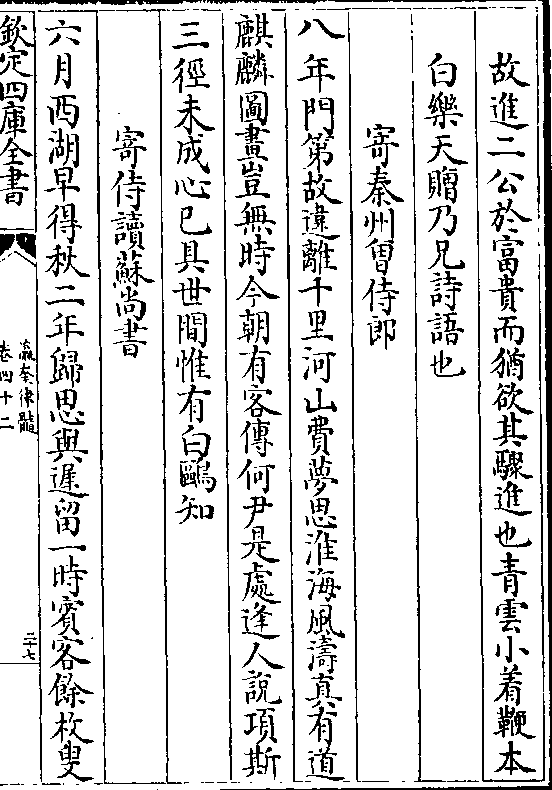 故進二公於富貴而猶欲其驟進也青雲小着鞭本
白樂天贈乃兄詩語也
寄秦州曾侍郎
八年門第故違離千里河山費夢思淮海風濤真有道
麒麟圖畫豈無時今朝有客傳何尹是處逢人說項斯
三徑未成心已具世間惟有白鷗知
寄侍讀蘇尚書
六月西湖早得秋二年歸思與遲留一時賓客餘枚叟
欽定四庫全書
瀛奎律髓
卷四十二
二十七